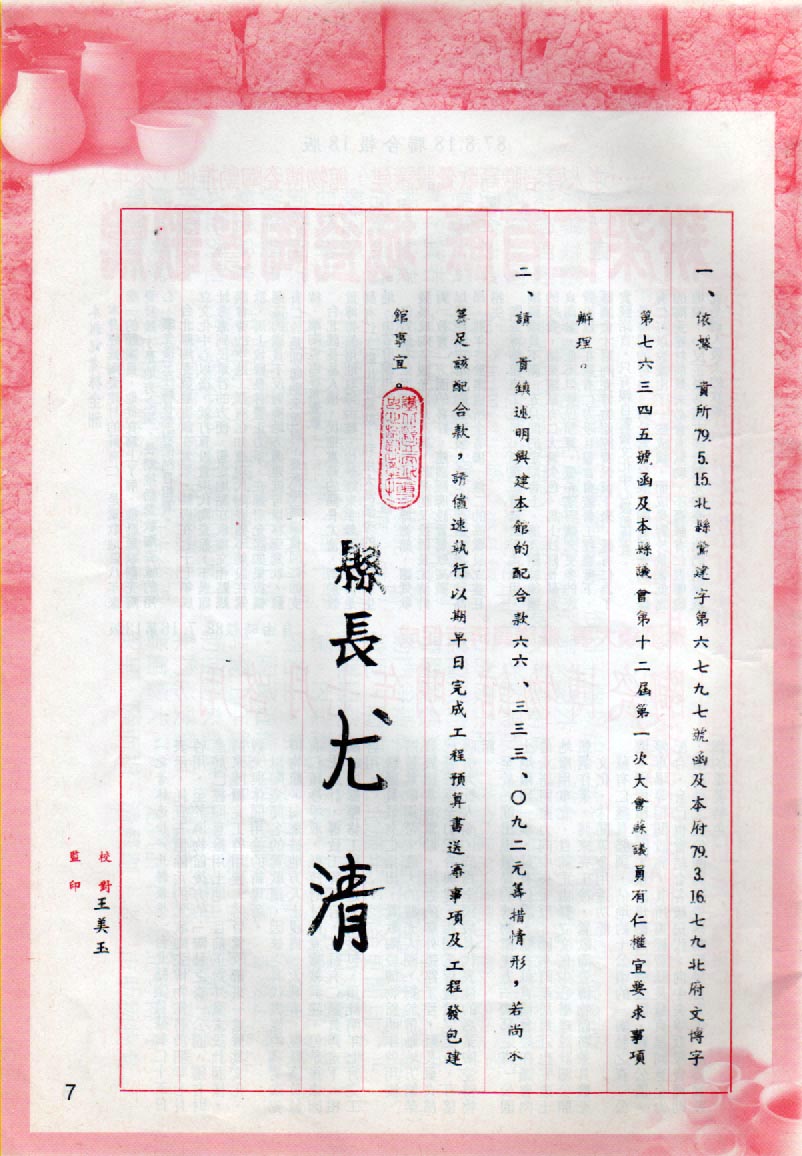 一、依據　貴所79.5.15.北縣鶯建字第六七九七號函及本府79.3.16.七九北府文博字
第七六三四五號函及本縣議會第十二屆第一次大會蘇議員有仁權宜要求事項
辦理。
二、請　貴鎮速明興建本館的配合款六六、三三三、〇九二元籌措情形，若尚未
籌足該配合款，請儘速執行以期早日完成工程預算書送審事項及工程發包建
館事宜。
縣長尤清
校對王美玉
監印
7